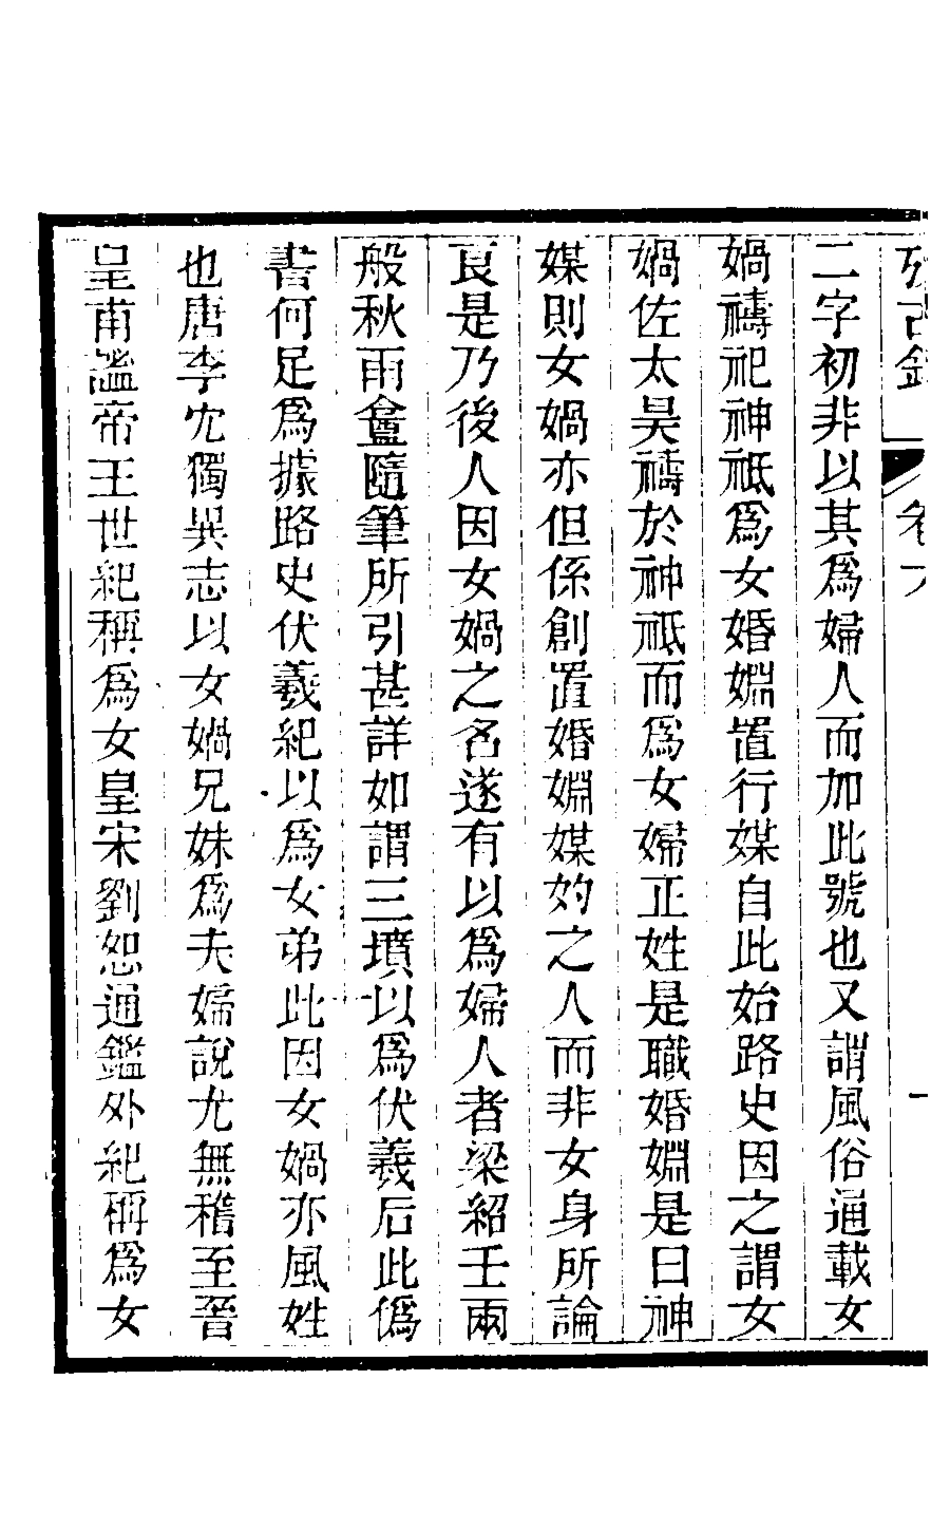 二字初非以其爲婦人而加此號也又謂風俗通載女
媧禱祀神祗爲女婚婣置行媒自此始路史因之謂女
媧佐太昊禱於神祗而爲女婦正姓是職婚婣是曰神
媒則女媧亦但係創置婚婣媒妁之人而非女身所論
良是乃後人因女媧之名遂有以爲婦人者梁紹壬兩
般秋雨盦隨筆所引甚詳如謂三墳以爲伏羲后此僞
書何足爲據路史伏羲紀以爲女弟此因女媧亦風姓
也唐李冗獨異志以女媧兄妹爲夫婦說尤無稽至晉
皇甫謐帝王世紀稱爲女皇宋劉恕通鑑外紀稱爲女